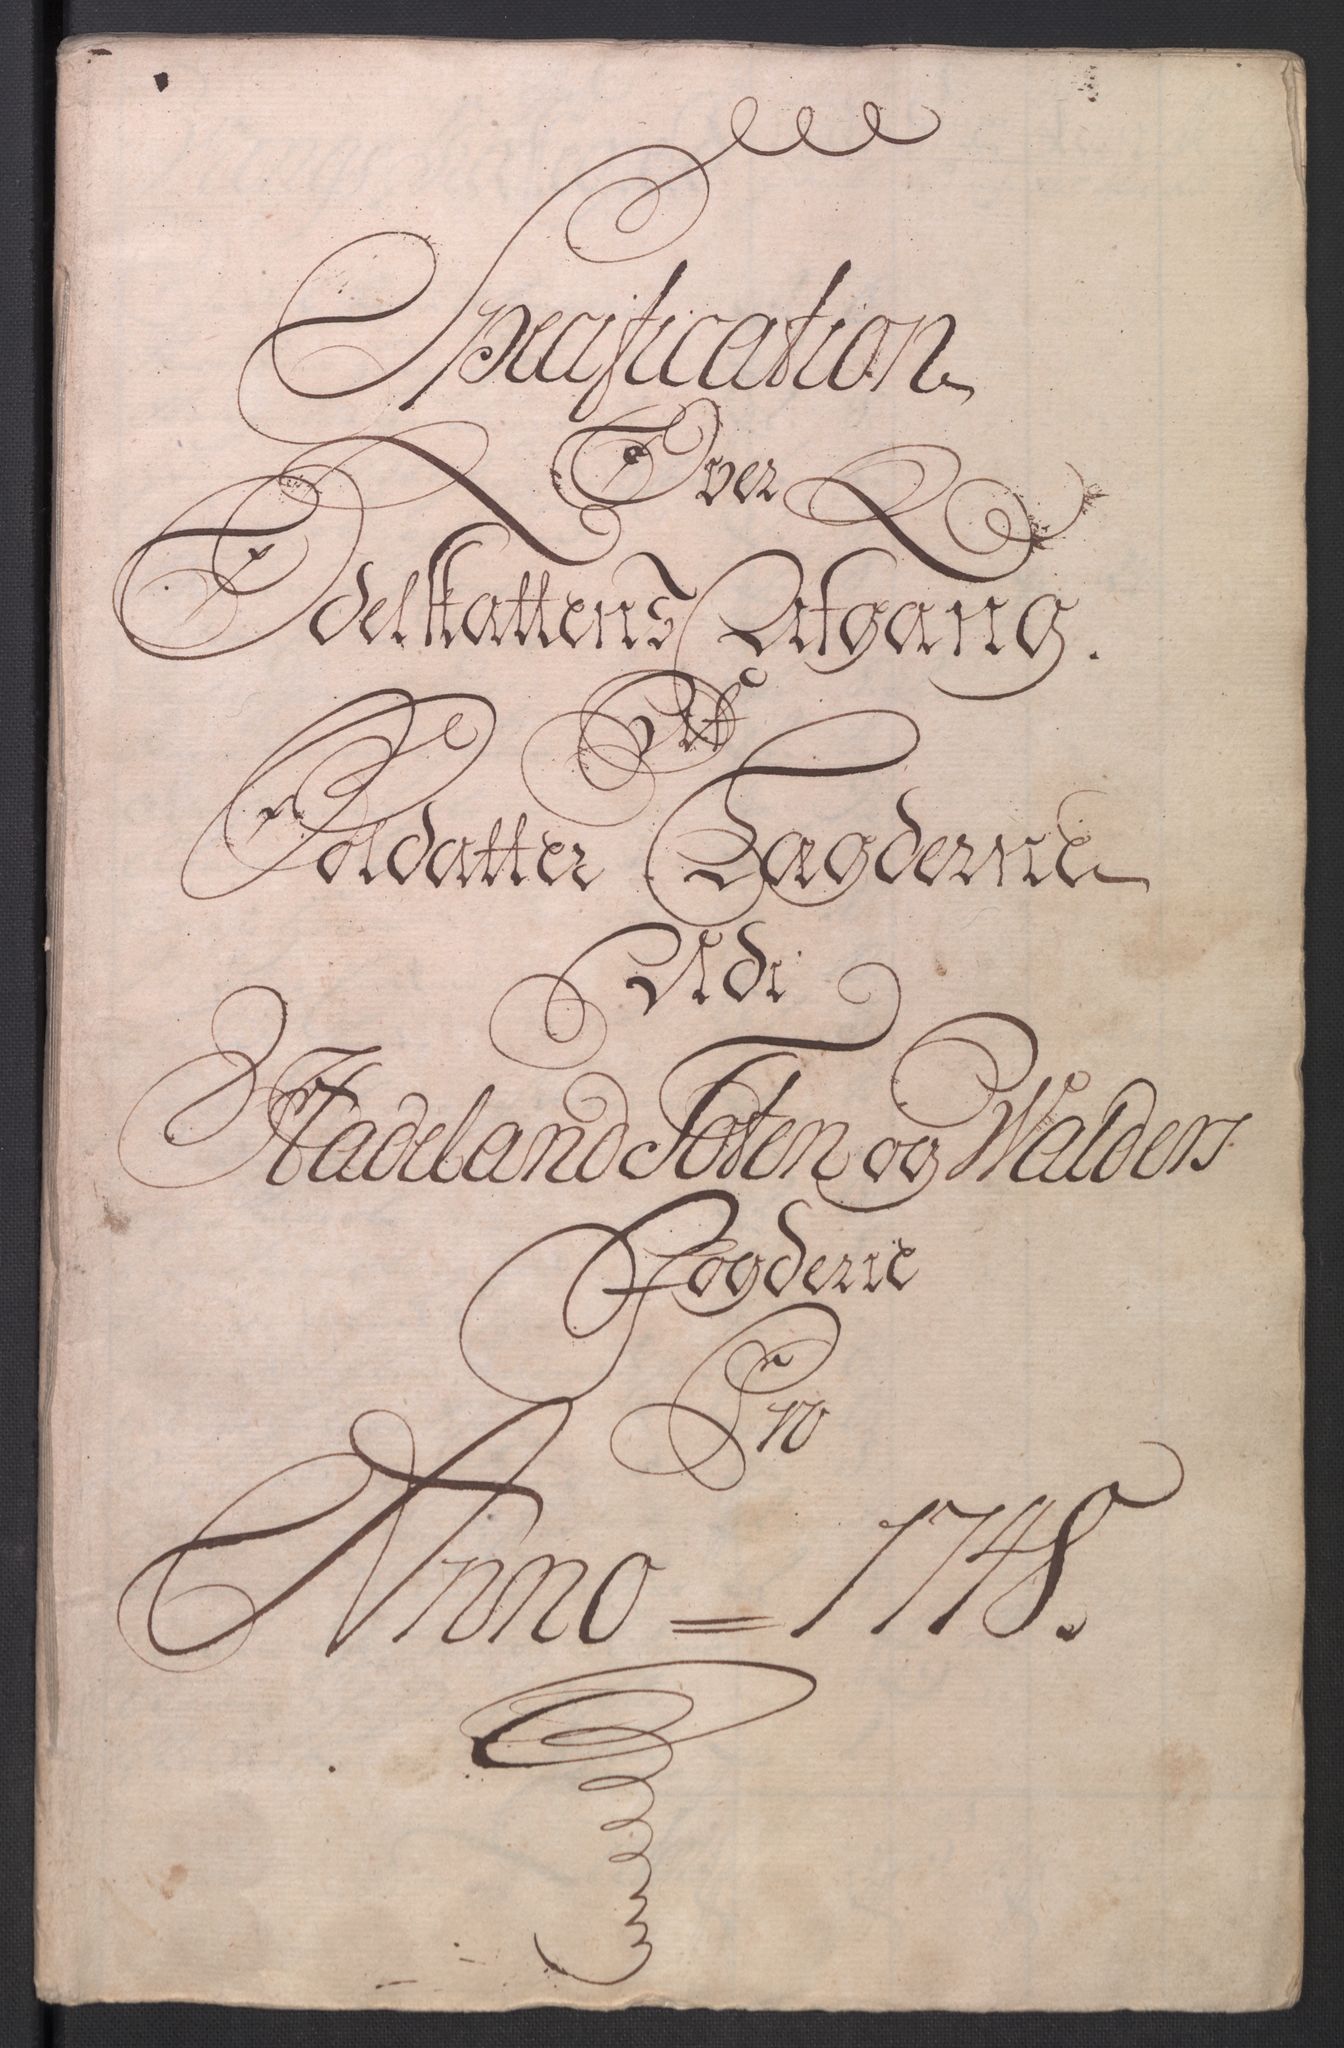 Specification
Over
Odelskattens Afgang.
Af
Soldatter Lagderne
Udi
Hadeland Toten og Walders
Fogderie
Pro
Anno = 1748.